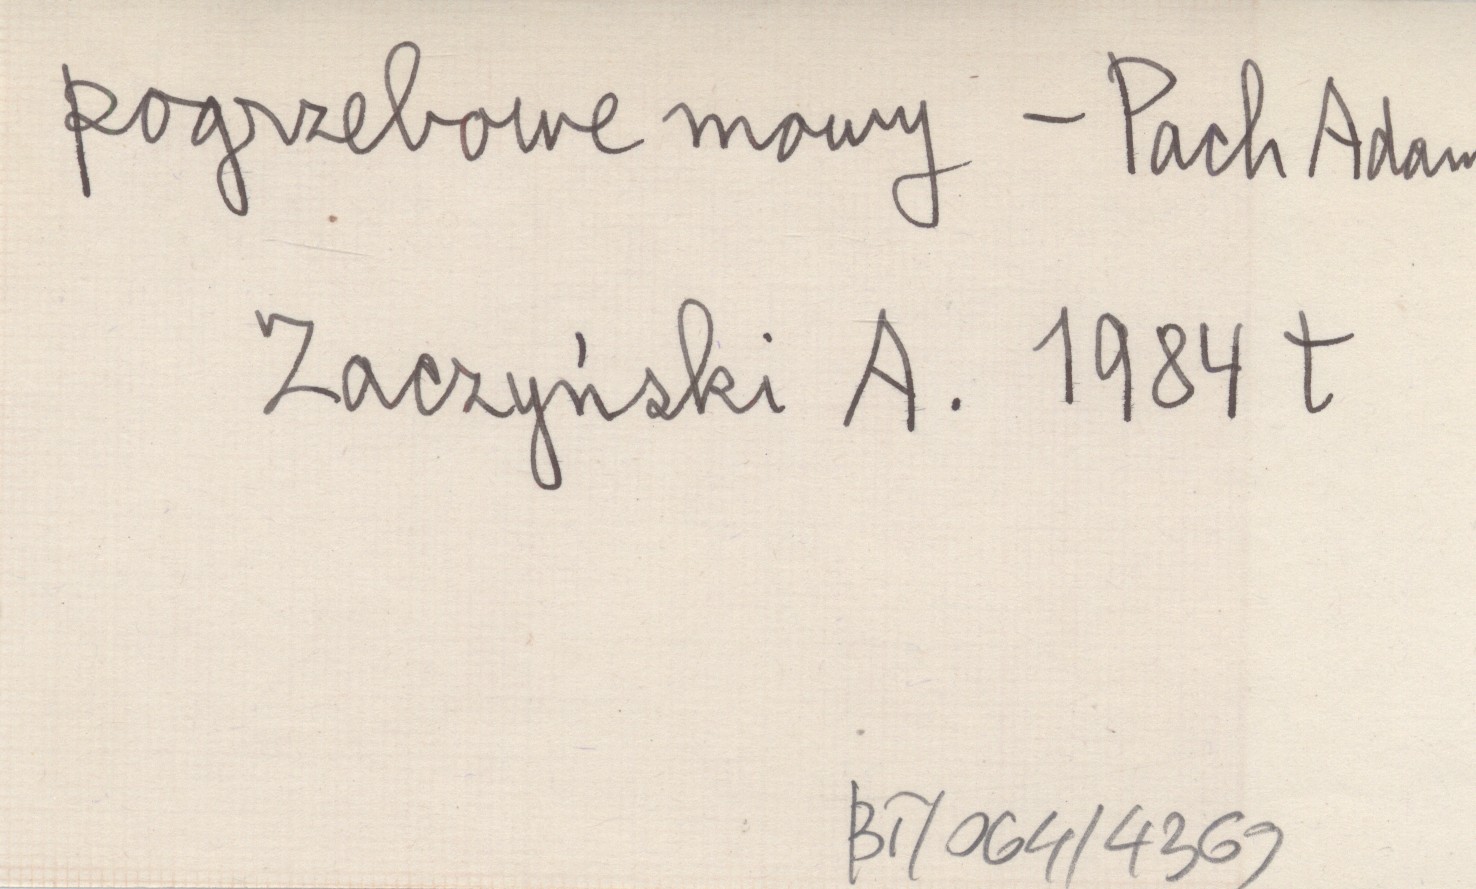 pogrzebowe mowy - Pach Adam
Zaczyński A. 1984 t
BI/064/4369